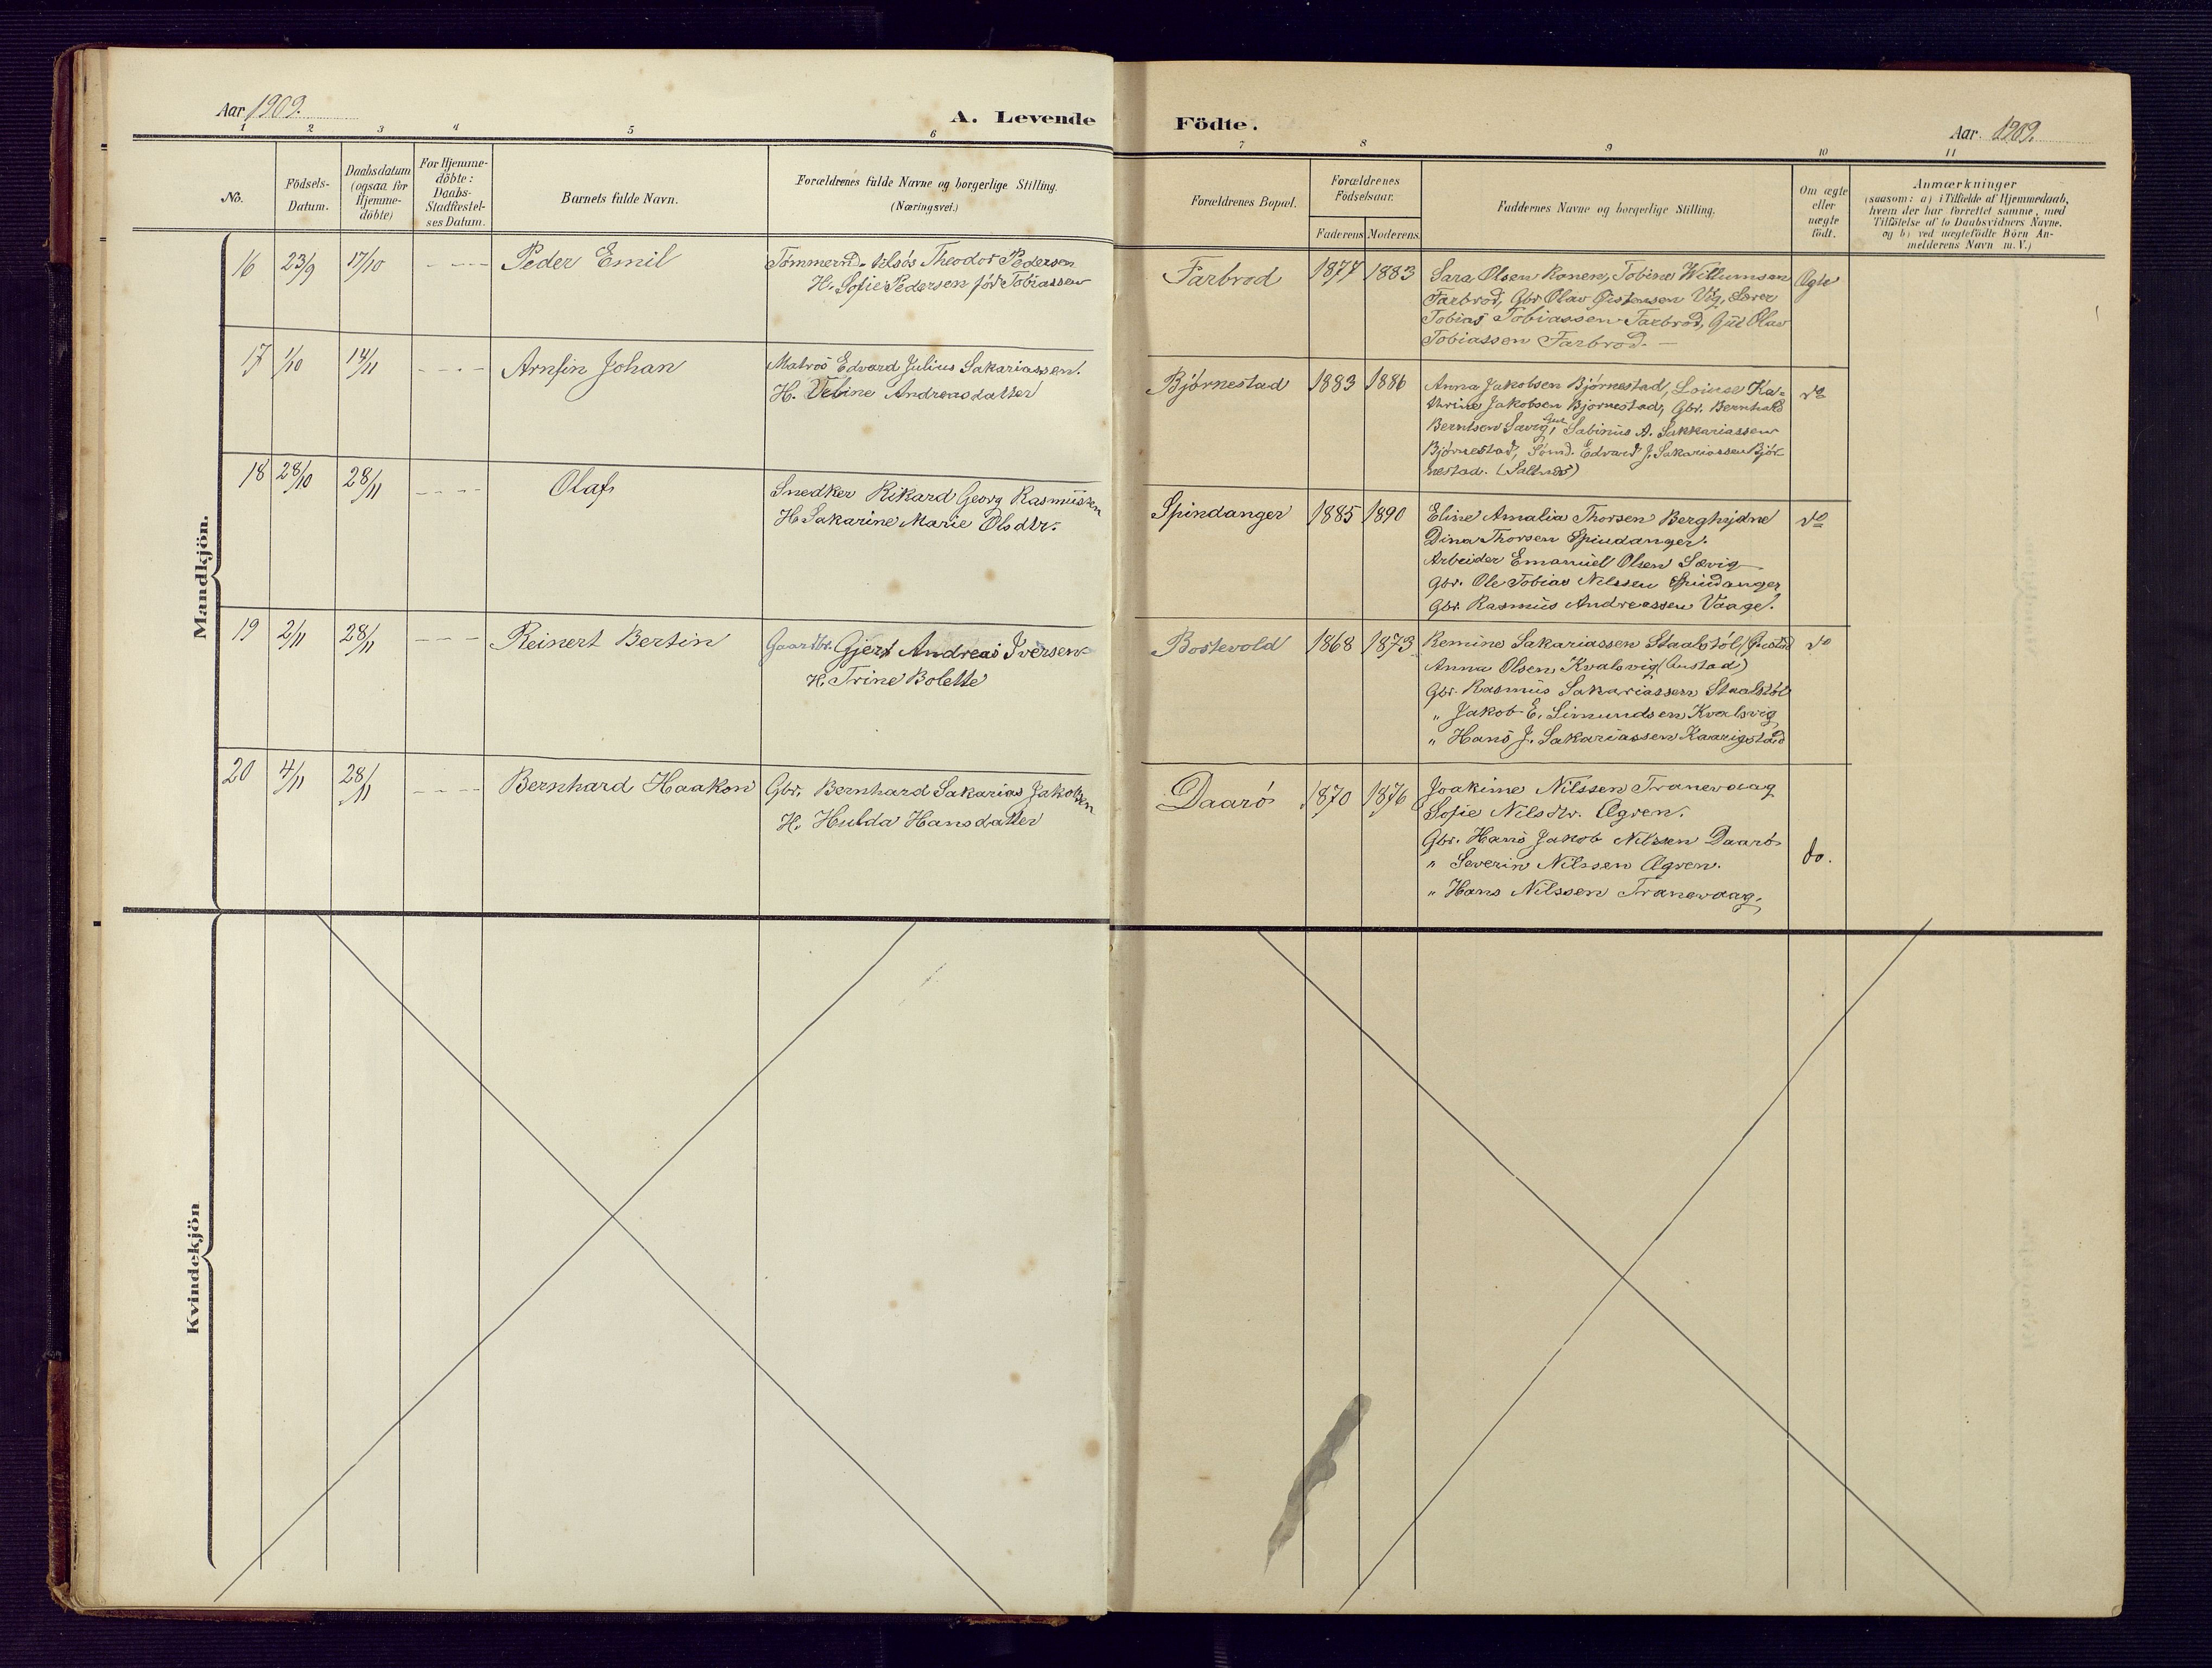 Aar 1909.
A. Levende Födte.
Aar. 1909.
1 2 3 4 5 6 7 8 9 10 11
No.
Födsels-
Datum.
Daabsdatum
(ogsaa for
Hjemme-
döbte)
For Hjemme-
döbte:
Daabs-
Stadfæstel-
ses Datum.
Barnets fulde Navn.
Forældrenes fulde Navne og borgerlige Stilling.
(Næringsvei.)
Forældrenes Bopæl.
Forældrenes
Födselsaar.
Faderens Moderens
Faddernes Navne og borgerlige Stilling.
Om ægte
eller
uægte
födt.
Anmærkninger
(saasom: a) i Tilfælde af Hjemmedaab,
hvem der har forrettet samme, med
Tilföielse af to Daabsvidners Navne.
og b) ved uægtefödte Börn An-
melderens Navn m. V.)
Mandkjön.
16 23/9 17/10 - - - - Peder Emil
Tømmermd. Theodor Pedersen
H. Sofie Pedersen født Tobiassen
Farbrod 1874 1883
Sara Olsen Konen, Tobine Willumsen
Farbrod, Gbr Olav Øistensen Vig,
Tobias Tobiassen Farbrod, Gut Olav
Tobiassen Farbrod. —
Ægte
17 1/10 14/11 - - - - Arnfin Johan
Matros Edvard Julius Sakariassen.
H. Andreasdatter
Bjørnestad 1883 1886
Anna Jakobsen Bjørnestad, Lovise Ka-
thrine Jakobsen Bjørnestad, Gbr. Bernhard
Berntsen Sævig, Gut Sabinus A. Sakkariassen
Bjørnestad, Sømd. Edvard J. Sakariassen Bjør-
nestad.
do
18 28/10 28/11 - - - - Olaf
Snedker Rikard Georg Rasmussen
H. Sakarine Marie Olsdtr.
Spindanger 1885 1890
Eline Amalia Thorsen Berghjdne
Dina Thorsen Spindanger.
Arbeider Emanuel Olsen Sævig
Gbr. Ole Tobias Nilssen Spindanger
Gbr. Rasmus Andreassen Vaage.
do
19 2/11 28/11 - - - Reinert Bertin
Gaardbr. Gjert Andreas Iversen
H. Trine Bolette
Bostevold 1868 1873
Remine Sakariassen Staalstøl
Anna Olsen Kvalsvig (Austad)
Gbr. Rasmus Sakariassen Staalstøl
" Jakob E. Simundsen Kvalsvig
" Hans J. Sakariassen Kaarigstad
do
20 4/11 28/11 - - - - Bernhard Haakon
Gbr. Bernhard Sakarias Jakobsen
H. Hulda Hansdatter
Daarø 1870 1876
Joakime Nilssen Tranevaag
Sofie Nilsdtr. Øgren.
Gbr. Hans Jakob Nilssen Daarø
" Severin Nilssen Øgren.
" Hans Nilssen Tranevaag.
do.
Kvindekjön